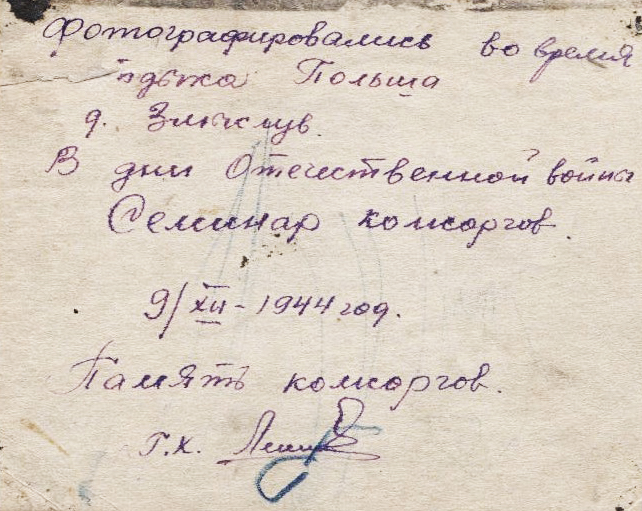 Фотографировались во время
Польша
д.
В дни Отечественной войны
Семинар комсоргов.
9/XII - 1944 год.
Память комсоргов.
Г.Х.